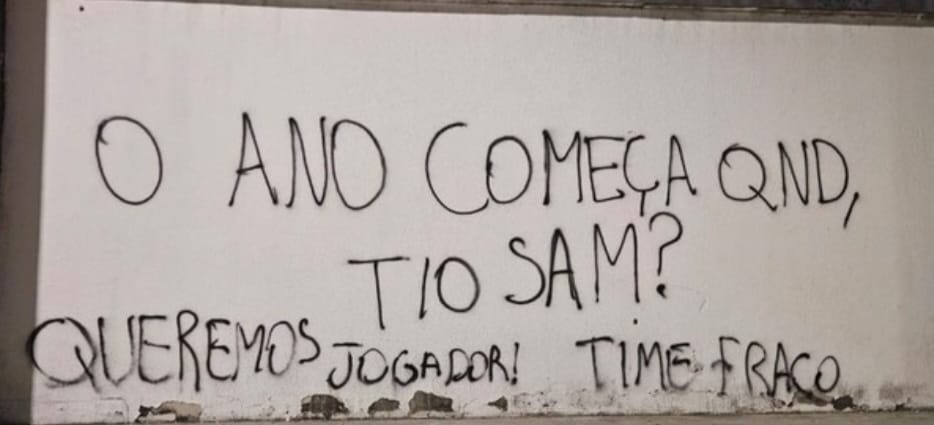 O ANO COMEÇA QND,
TIO SAM?
QUEREMOS JOGADOR! TIME FRACO